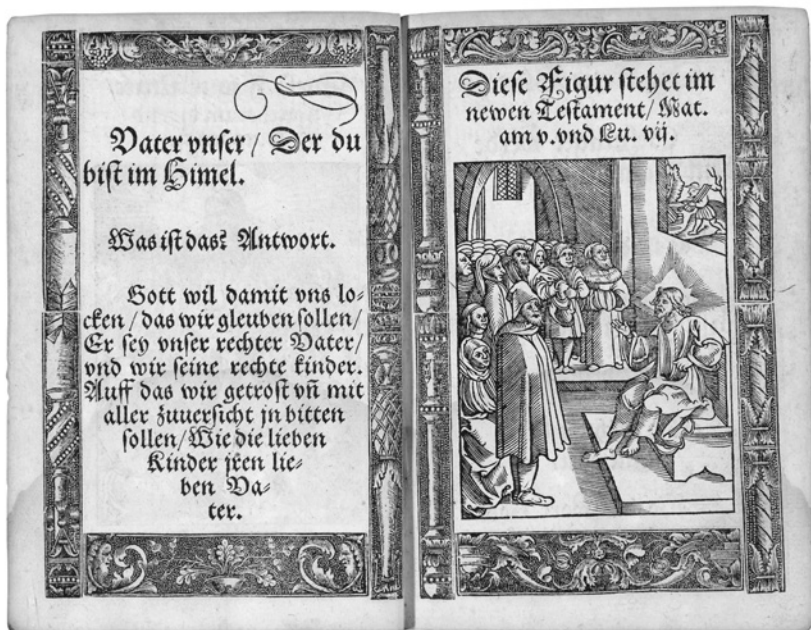 Vater vnser / Der du
bist im Himel.
Was ist das? Antwort.
Gott wil damit vns lo⸗
cken / das wir gleuben sollen /
Er sey vnser rechter Vater /
vnd wir seine rechte kinder.
Auff das wir getrost vñ mit
aller zuuersicht jn bitten
sollen / Wie die lieben
Kinder jren lie⸗
ben Va⸗
ter.
Diese Figur stehet im
newen Testament / Mat.
am v. vnd Lu. vij.